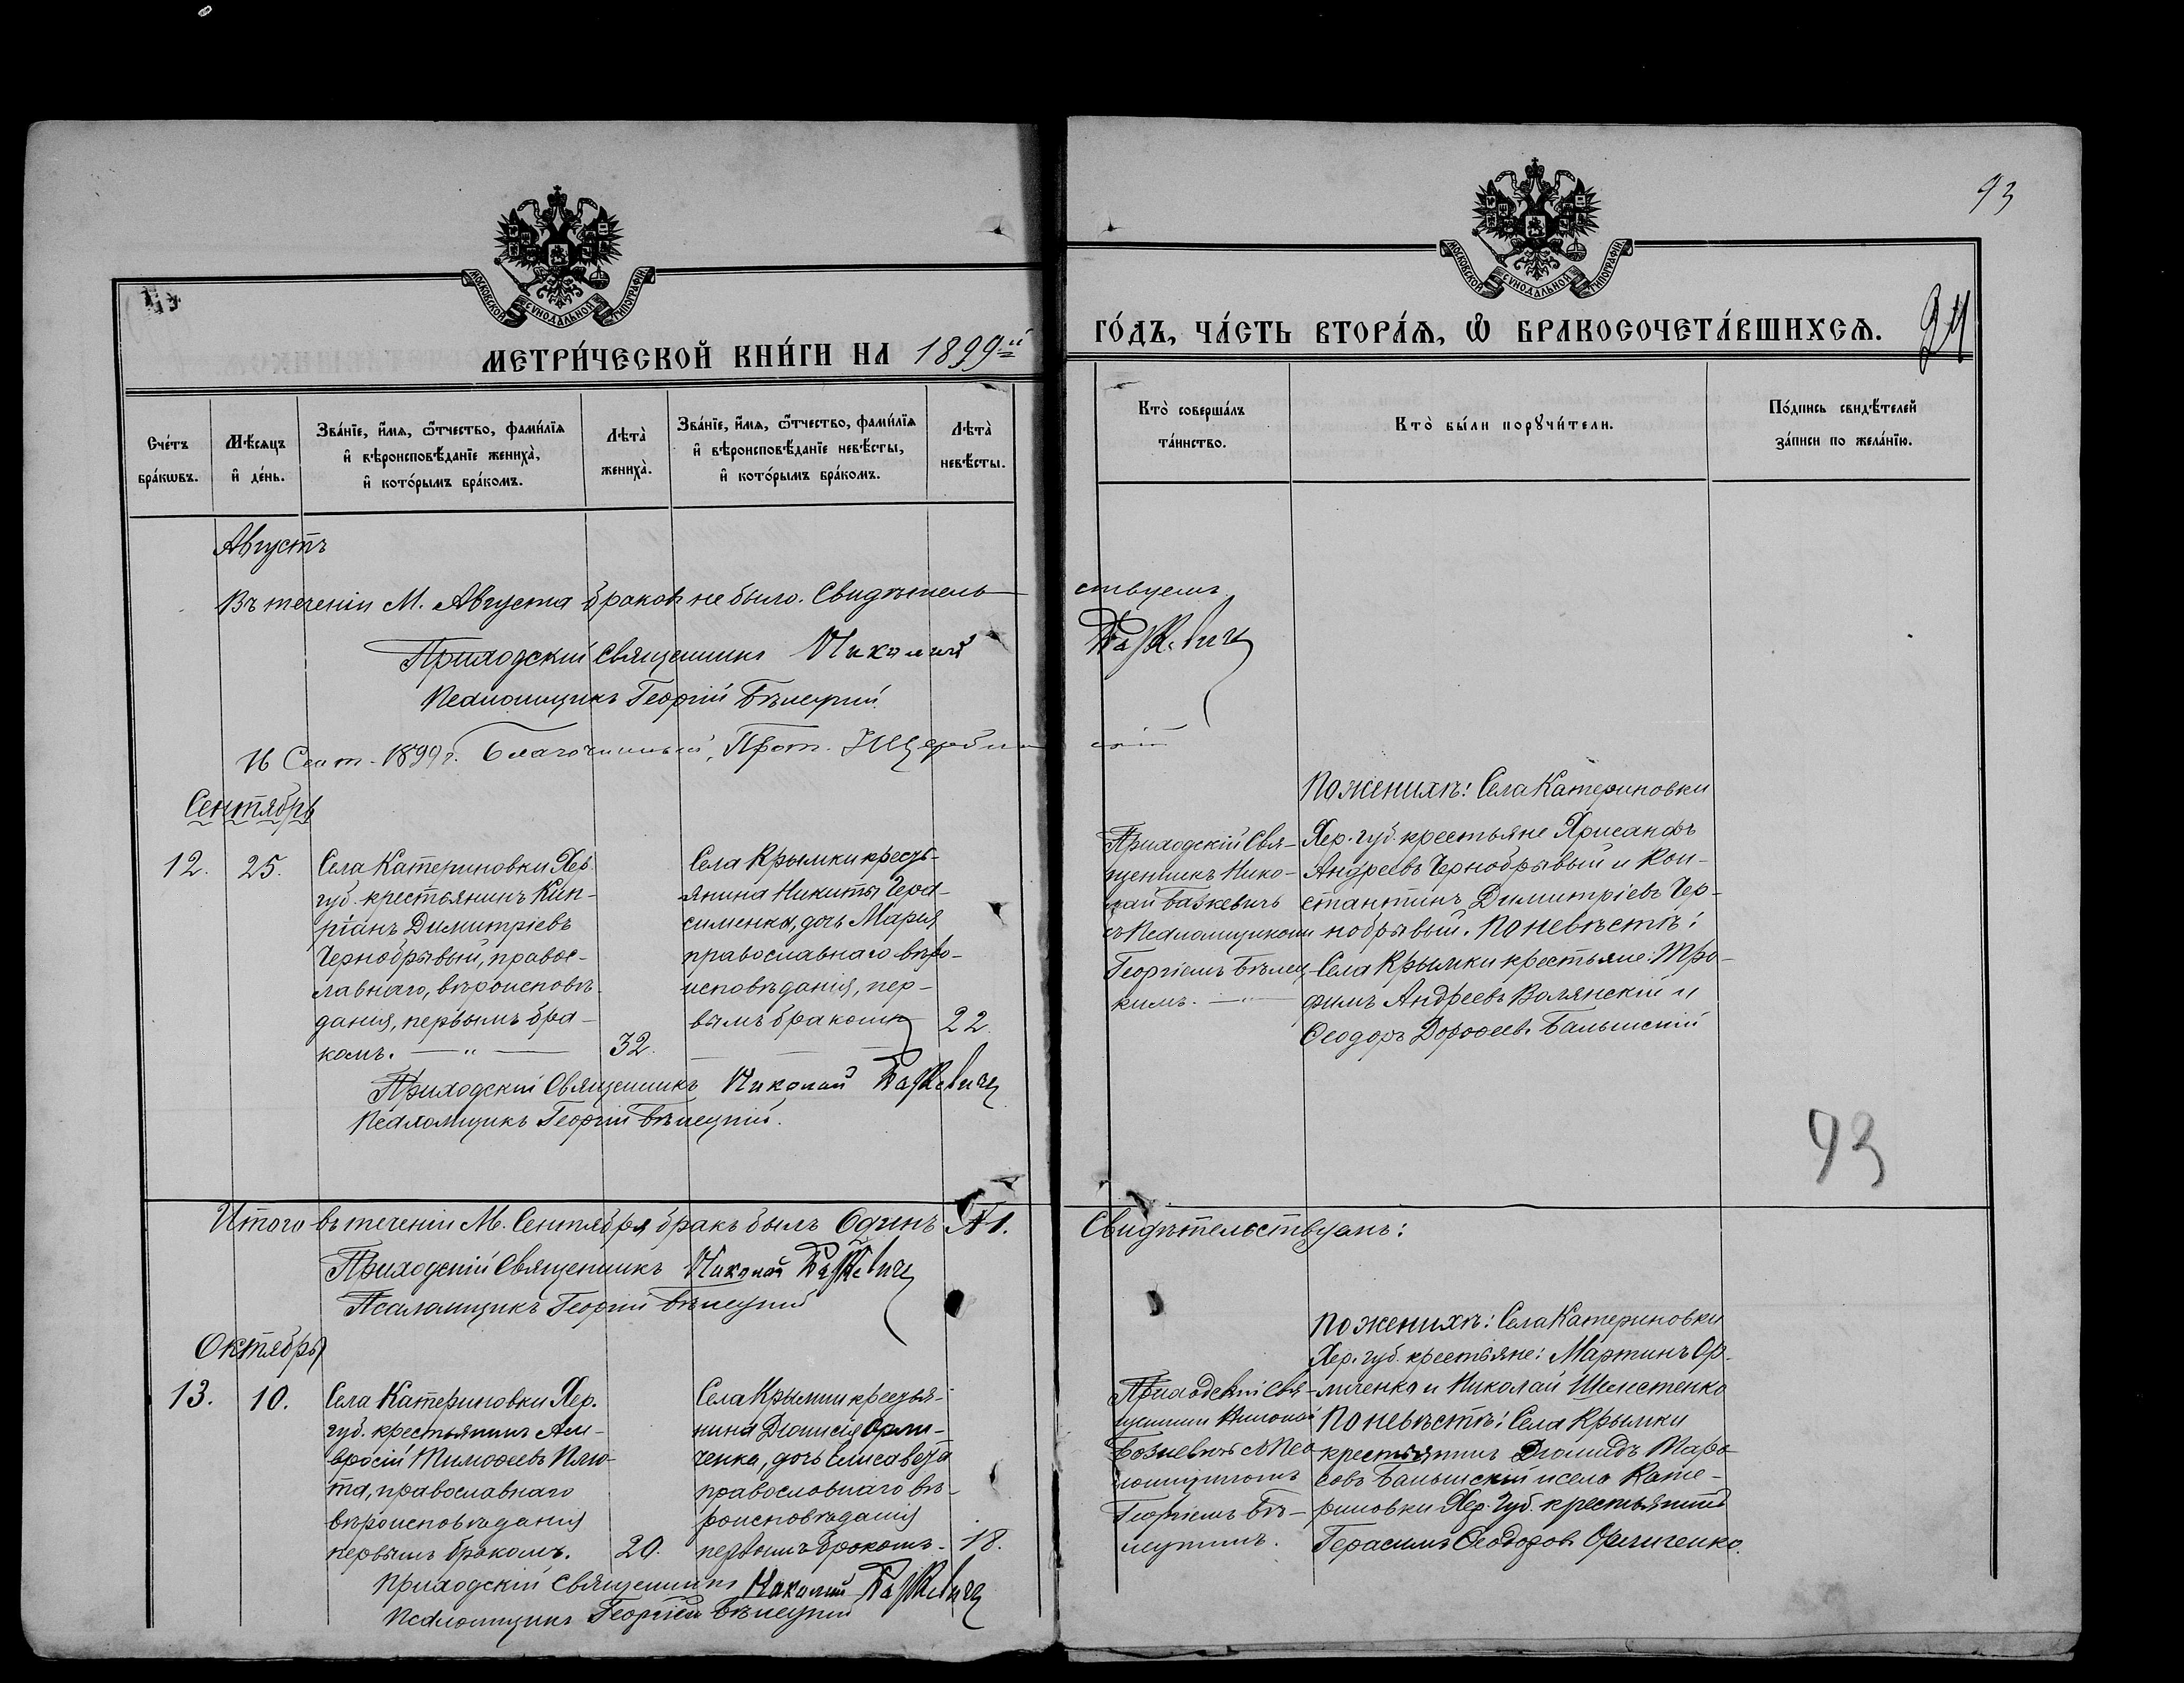 93
МОСКОВСКОЙ СУНОДАЛЬНОЙ ТИПОГРАФІИ
МОСКОВСКОЙ СУНОДАЛЬНОЙ ТИПОГРАФІИ
МЕТРИ́ЧЕСКОЙ КНИ́ГИ НА 1899й
ГО́ДЪ, ЧА́СТЬ ВТОРА́Я, Ѡ҆ БРАКОСОЧЕТА́ВШИХСЯ.
94
Сче́тъ бра́кѡвъ.
Мѣ́сяцъ и҆ де́нь.
Зва́нїе, и҆́мя, ѻ҆́тчество, фами́лїя и҆ вѣроисповѣ́данїе жениха̀, и҆ кото́рымъ бра́комъ.
Лѣта̀ жениха̀.
Зва́нїе, и҆́мя, ѻ҆́тчество, фами́лїя и҆ вѣроисповѣ́данїе невѣ́сты, и҆ кото́рымъ бра́комъ.
Лѣта̀ невѣ́сты.
Кто̀ соверша́лъ та́инство.
Кто̀ бы́ли порꙋчи́тели.
По́дпись свидѣ́телей за́писи по жела́нїю.
Августъ
Въ теченіи М. Августа браковъ не было. Свидѣтель
ствуемъ
Приходскій Священникъ Николай
Базкевичъ
Псаломщикъ Георгій Бѣлецкій
16 Сент. 1899 г. Благочинный, Прот.
Сентябрь
12.
25.
Села Катериновки Хер.
губ. крестьянинъ Кип-
ріанъ Димитріевъ
Чернобрывый, правос-
лавнаго, вѣроисповѣ-
данія, первымъ бра-
комъ. — " —
32.
Села Крымки кресть-
янина Никиты Гера-
сименка, дочь Марія
православнаго вѣро-
исповѣданія, пер-
вымъ бракомъ
22.
Приходскій Свя-
щенникъ Нико-
лай Базкевичъ
съ Псаломщикомъ
Георгіемъ Бѣлец-
кимъ. — " —
По женихѣ: Села Катериновки
Хер. губ. крестьяне Хрисанфъ
Андреевъ Чернобрывый и Кон-
стантинъ Димитріевъ Чер-
нобрывый. По невѣстѣ:
Села Крымки крестьяне: Тро-
фимъ Андреевъ Волянскій и
Ѳеодоръ Дороѳеевъ
Приходскій Священникъ Николай Базкевичъ
Псаломщикъ Георгій Бѣлецкій.
93
Итого въ теченіи М. Сентября бракъ былъ Одинъ № 1.
Свидѣтельствуемъ:
Приходскій Священникъ Николай Базкевичъ
Псаломщикъ Георгій Бѣлецкій
Октябрь
13.
10.
Села Катериновки Хер.
губ. крестьянинъ Ам-
вросій Тимоѳеевъ Плю-
та, православнаго
вѣроисповѣданія
первымъ бракомъ.
20.
Села Крымки крестья-
нина Діонисія Орли-
ченка, дочь Елисавета
православнаго вѣ-
роисповѣданія
первымъ бракомъ.
18.
Приходскій Свя-
щенникъ Николай
Базкевичъ съ Пса-
ломщикомъ
Георгіемъ Бѣ-
лецкимъ.
По женихѣ: Села Катериновки
Хер. губ. крестьяне: Мартинъ Ор-
личенко и Николай
По невѣстѣ: Села Крымки
крестьянинъ Діомидъ Тара-
совъ и села Кате-
риновки Хер. губ. крестьянинъ
Герасимъ Ѳеодоровъ Орличенко.
Приходскій Священникъ Николай Базкевичъ
Псаломщикъ Георгій Бѣлецкій